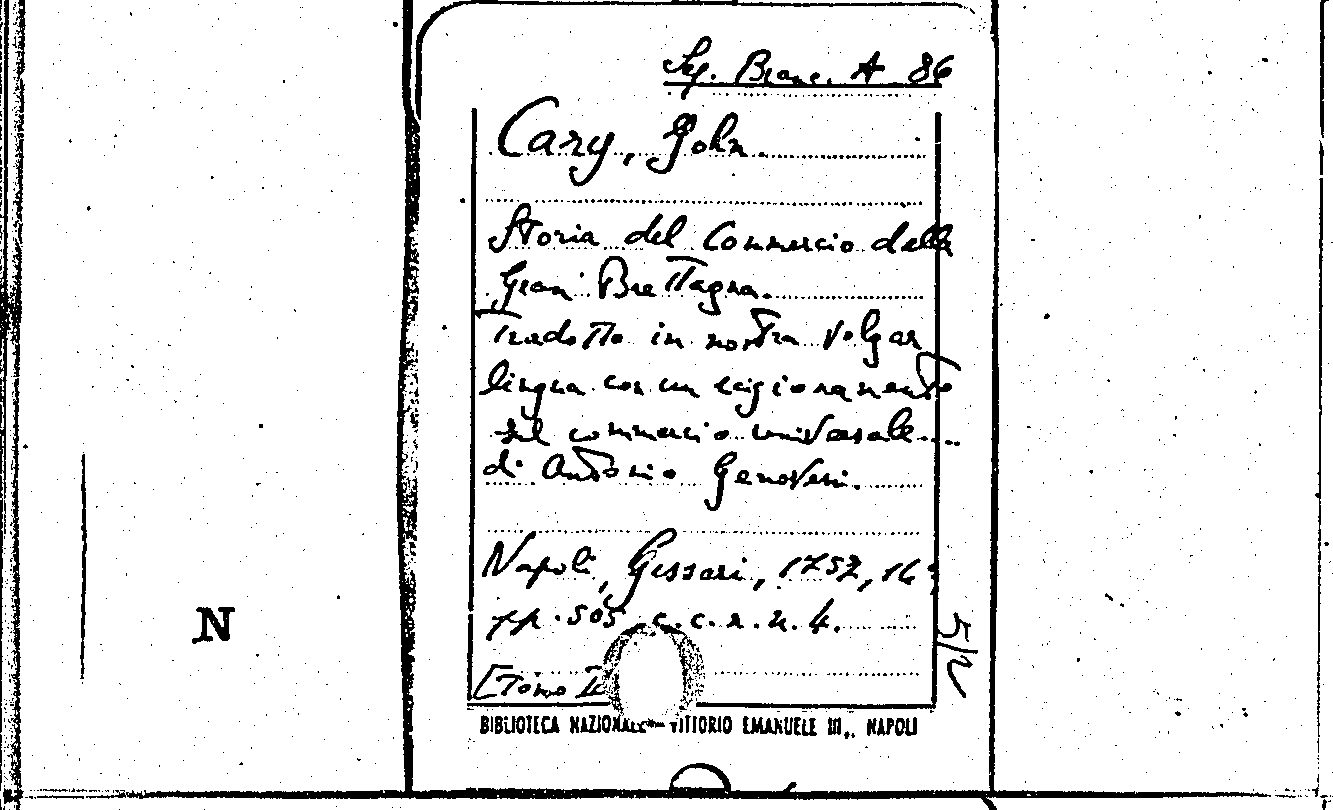 Sez. Branc. A 86
Cary, John.
Storia del Commercio della
Gran Brettagna.
Tradotto in nostra volgar
lingua con un ragionamento
sul commercio universale....
di Antonio Genovesi.
Napoli, Gessari, 1757, 16°
pp. 505, c.c.n.n. 4.
[Tomo I
BIBLIOTECA NAZIONALE VITTORIO EMANUELE III,, NAPOLI
N